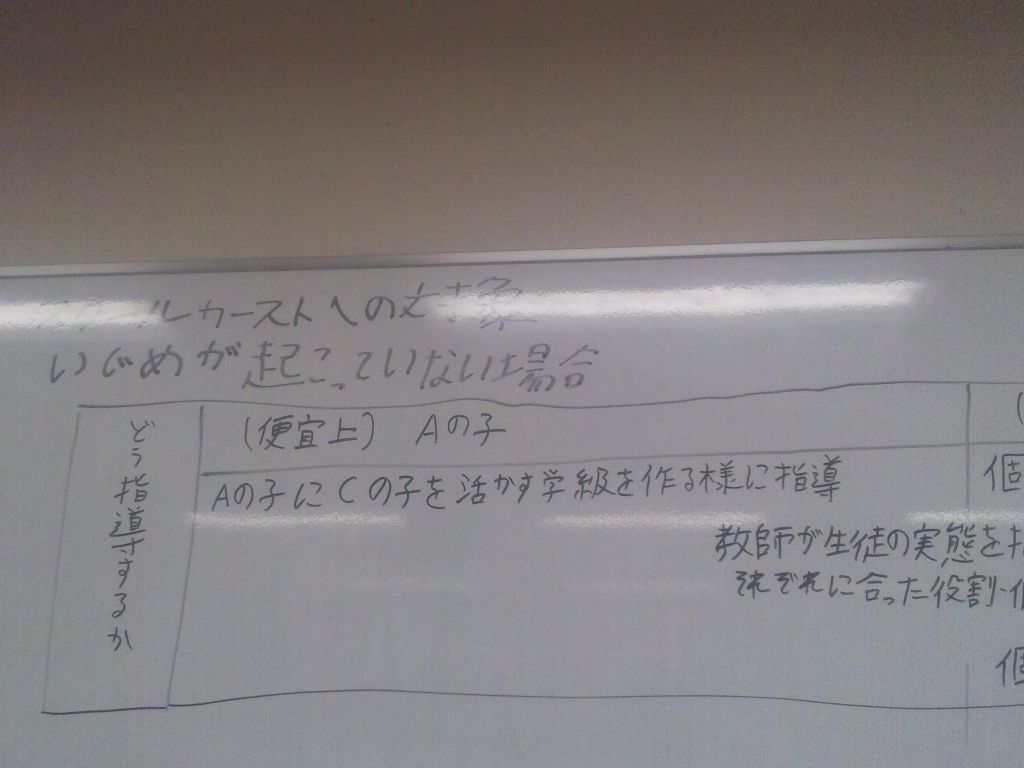 スクールカーストへの対象
いじめが起こっていない場合
どう指導するか
(便宜上) Aの子
(
Aの子にCの子を活かす学級を作る様に指導
個
教師が生徒の実態を
それぞれに合った役割・
個